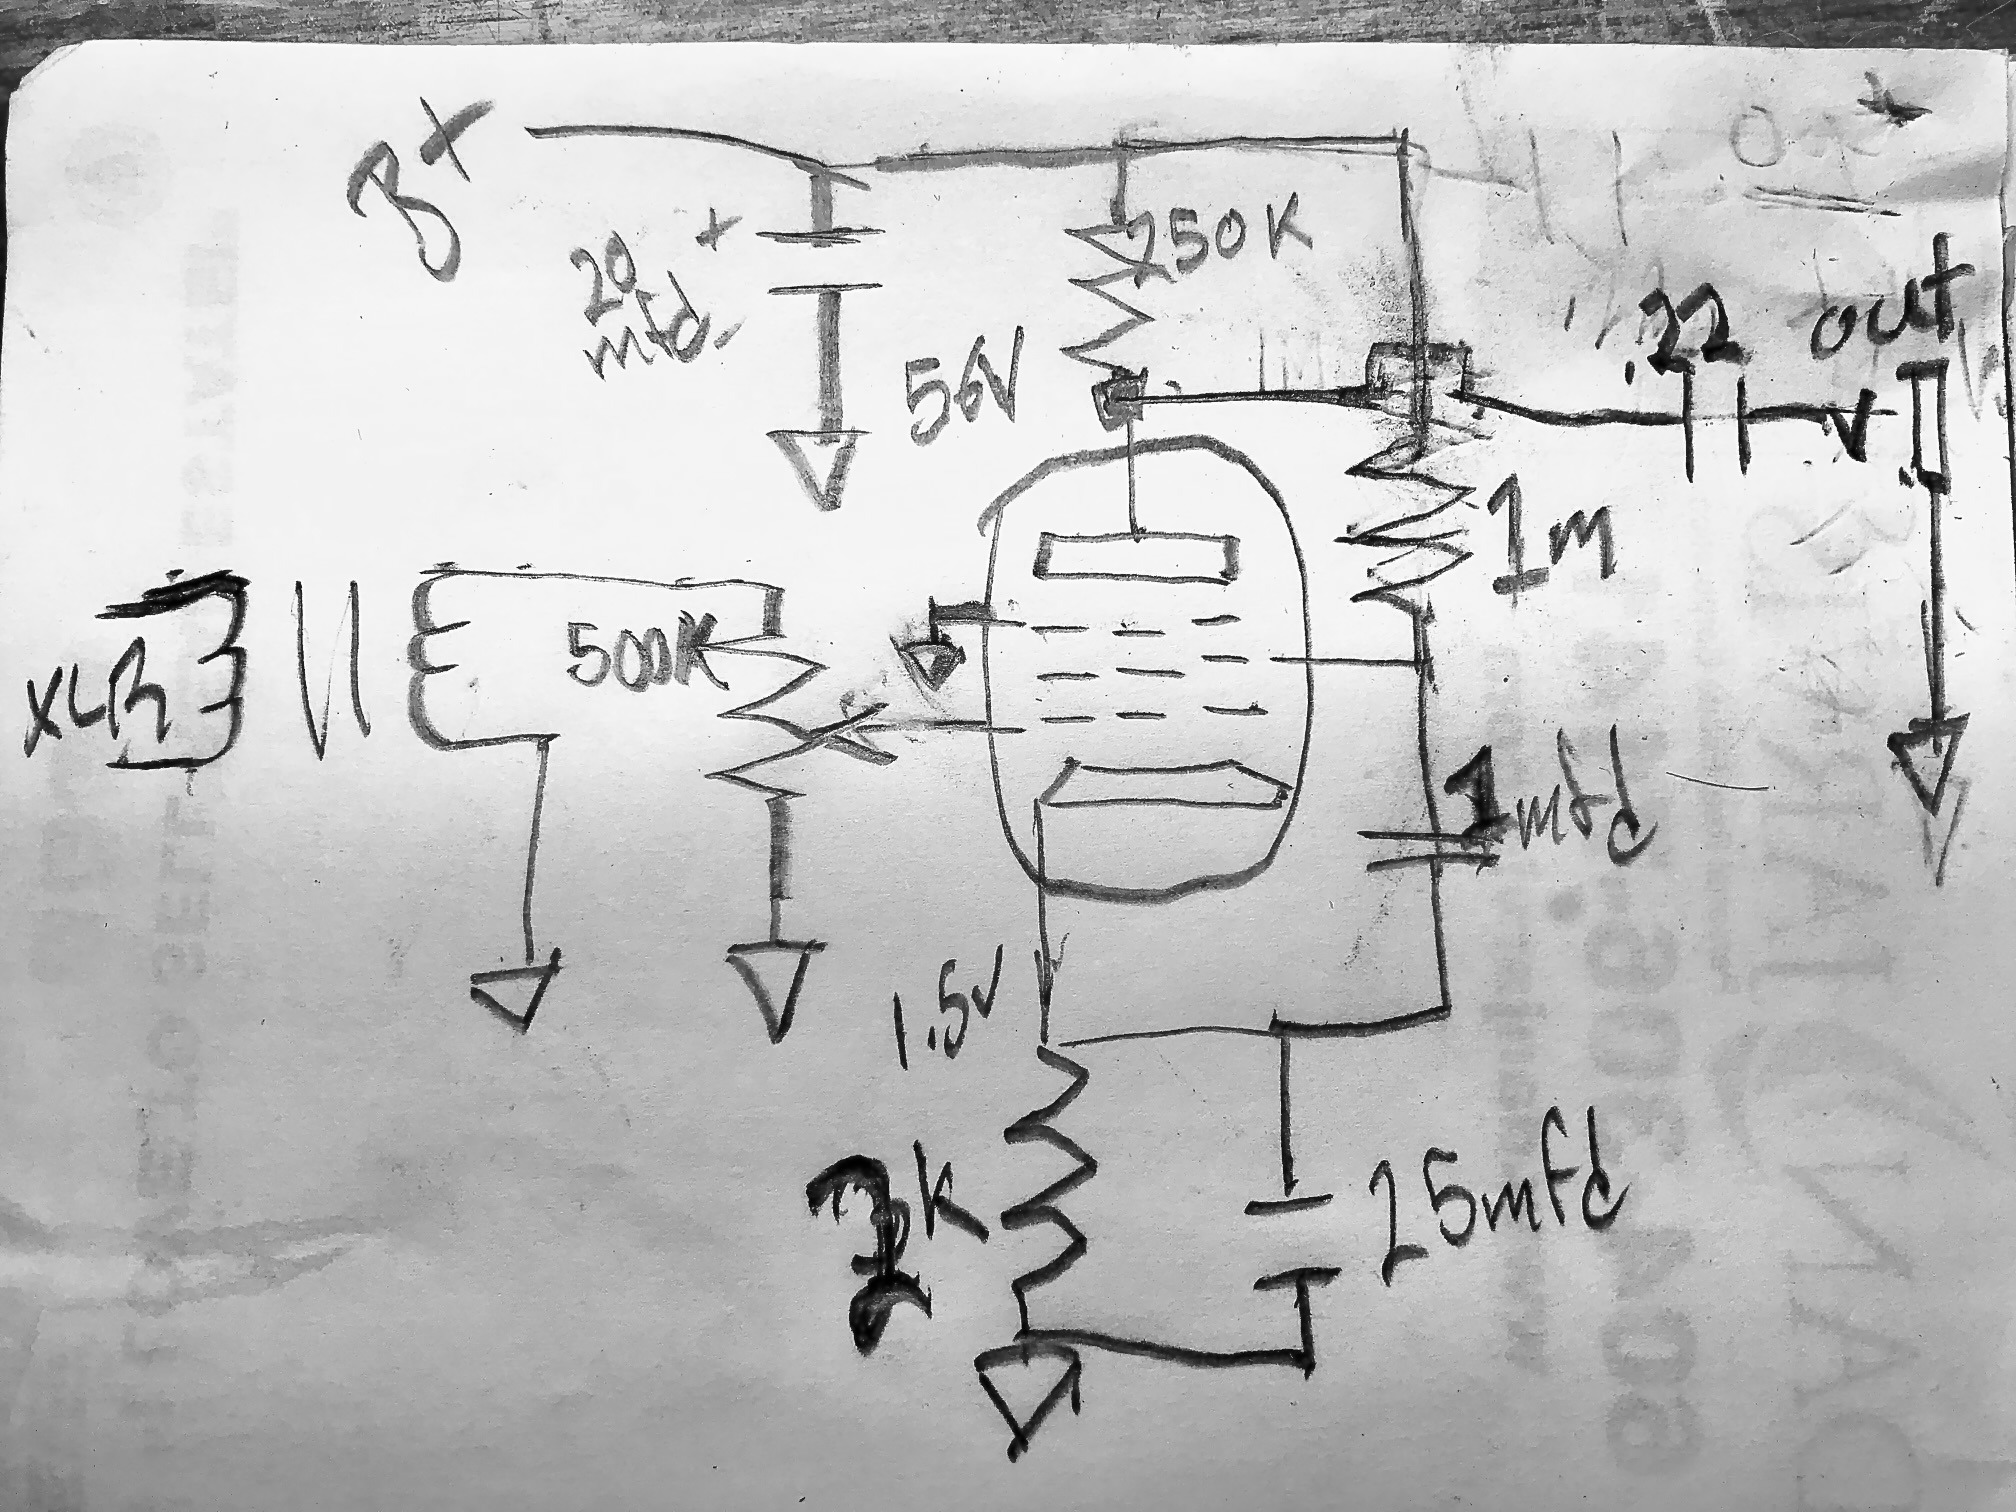 B+
20
mfd
+
-
250K
56V
.22 out
1m
XLR
500K
1mfd
1.5V
25mfd